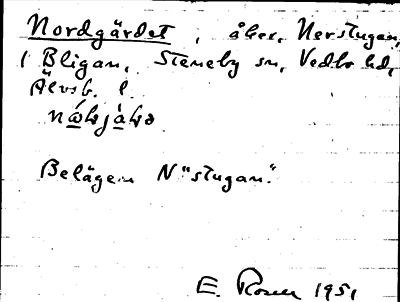 Nordgärdet, åker, Nerstugan,
1 Bligan, Steneby sn, Vedbo hd,
Älvsb. l.
Belägen N "stugan".
E. Rosen 1951